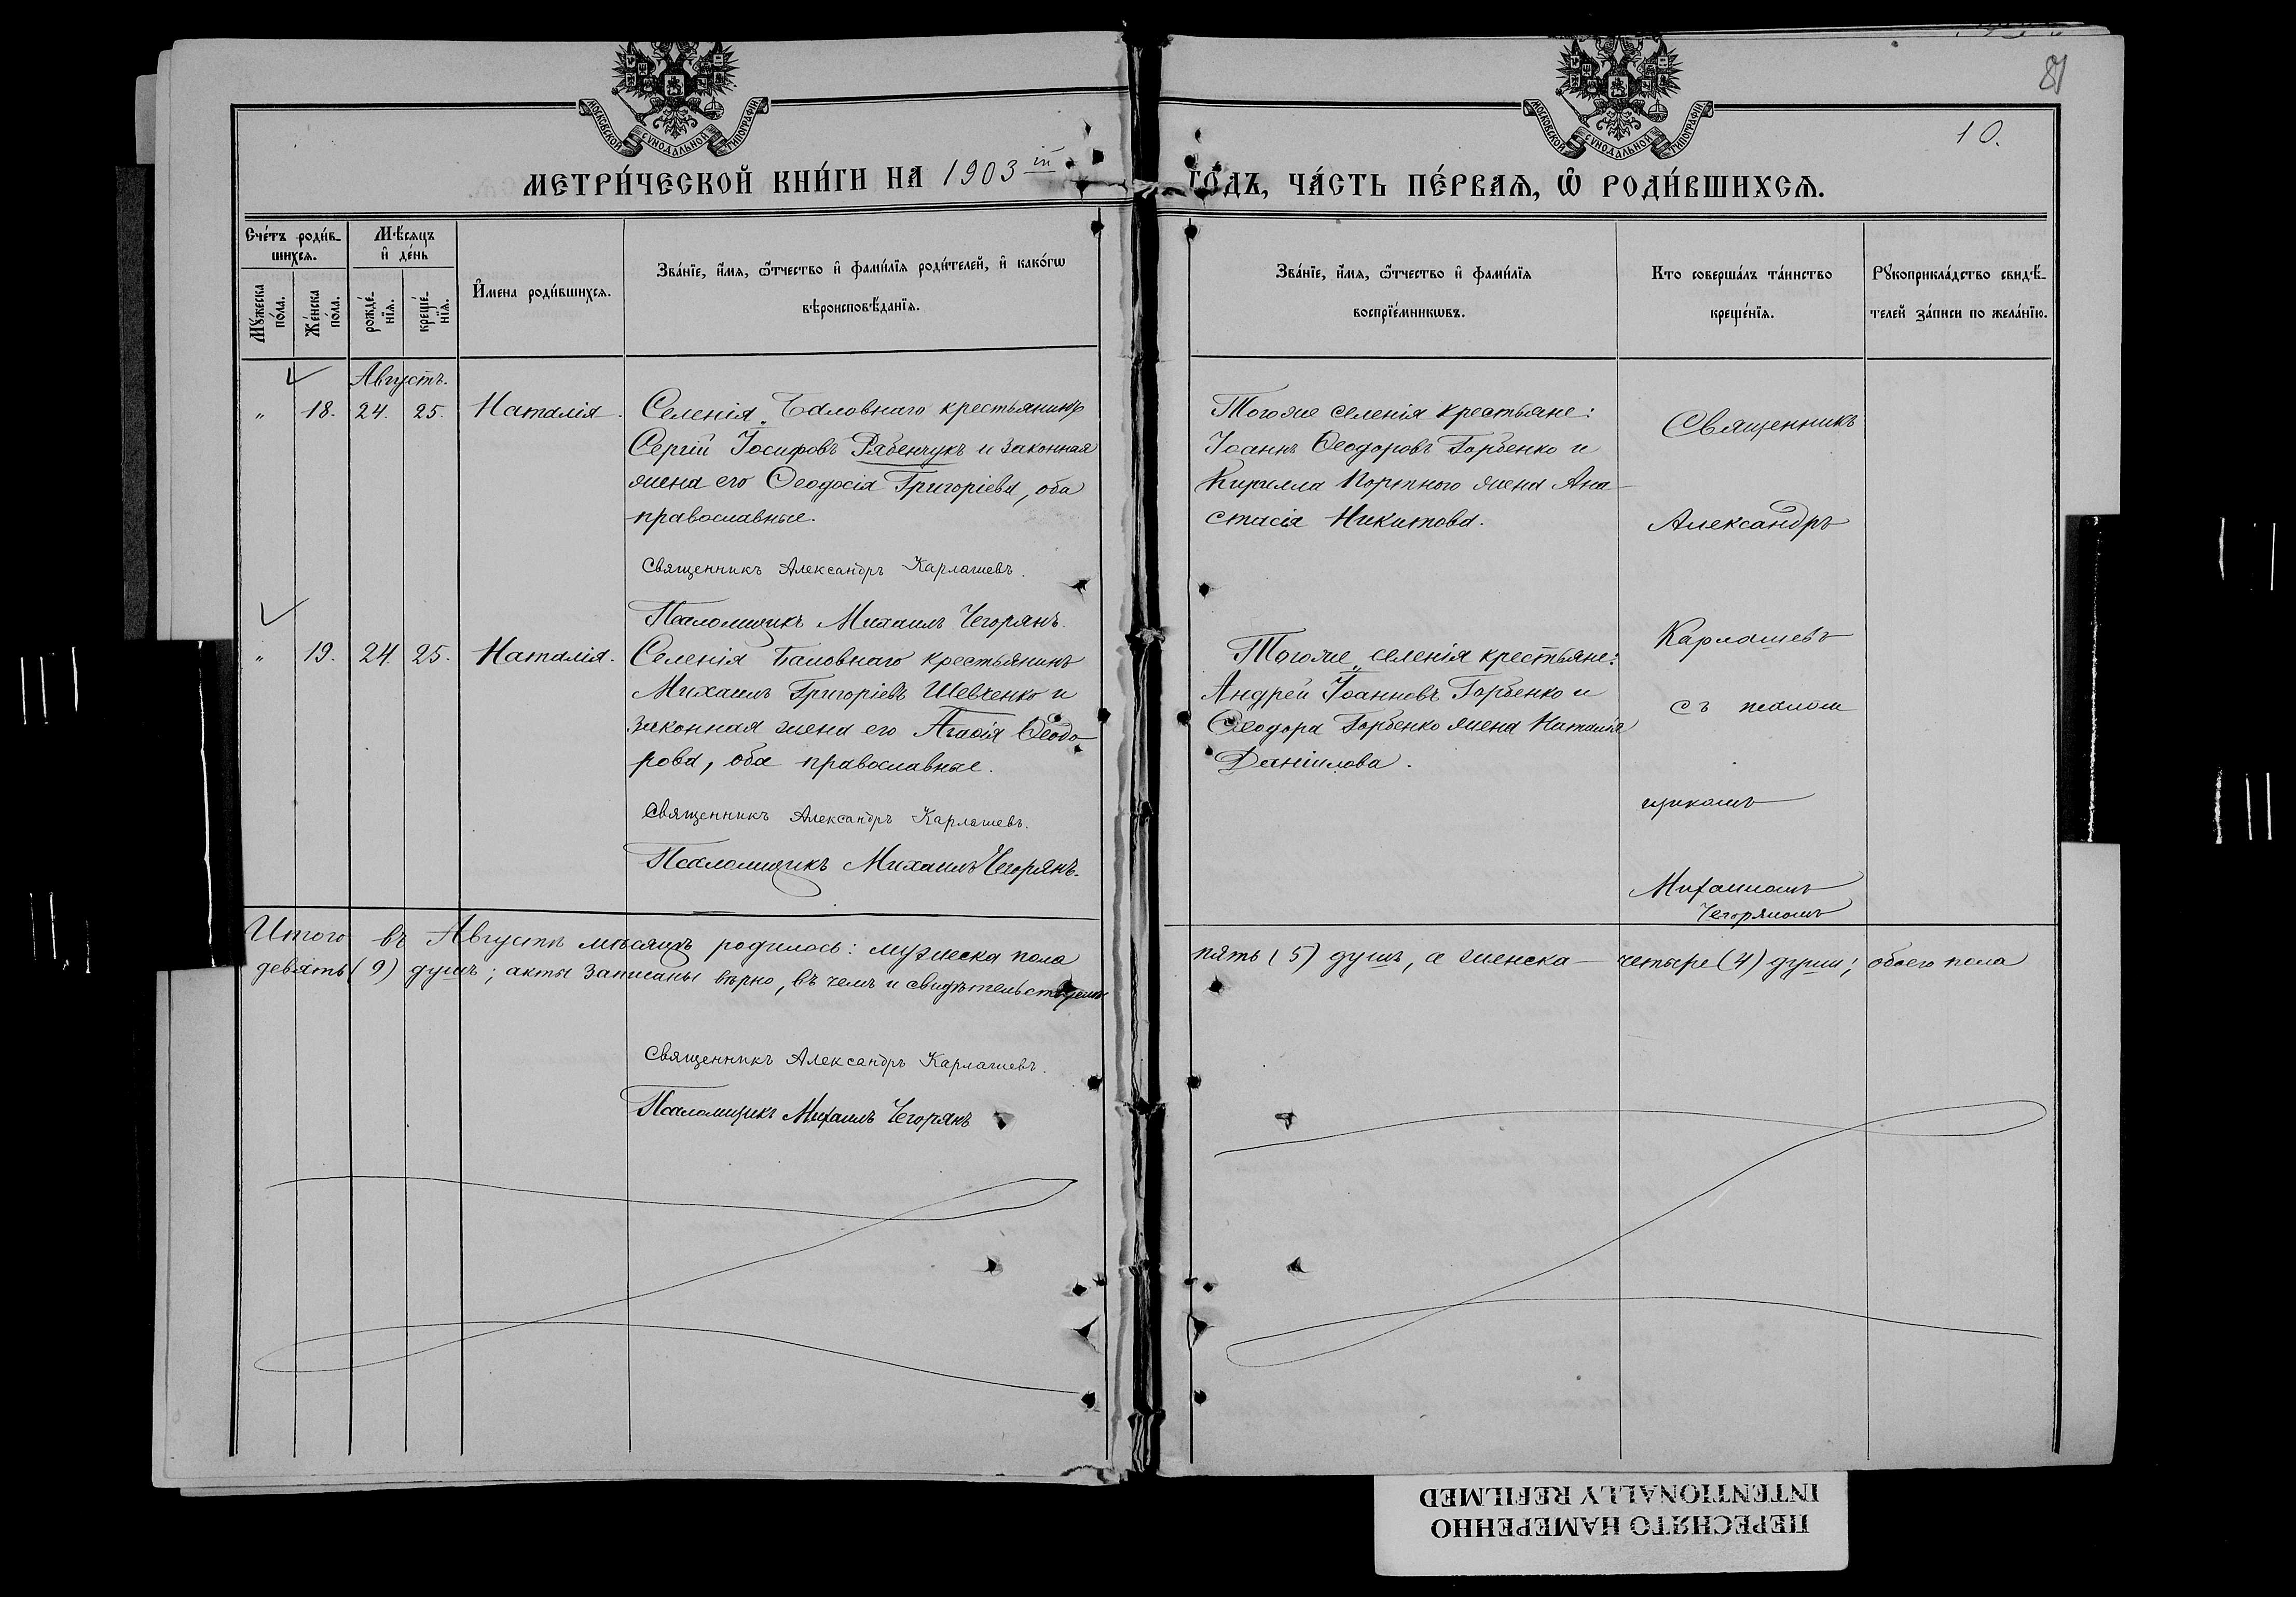 81
10.
МОСКОВСКОЙ СѴНОДАЛЬНОЙ ТИПОГРАФІИ
МОСКОВСКОЙ СѴНОДАЛЬНОЙ ТИПОГРАФІИ
МЕТРИ́ЧЕСКОЙ КНИ́ГИ НА 1903 ій
ГО́ДЪ, ЧА́СТЬ ПЕ́РВАѦ, Ѡ҆ РОДИ́ВШИХСѦ.
Сче́тъ роди́в-
шихсѧ.
Мꙋ́жеска по́ла.
Же́нска по́ла.
Мѣ́сѧцъ
и҆ де́нь
рожде́-
нїѧ.
креще́-
нїѧ.
И҆мена роди́вшихсѧ.
Зва́нїе, и҆́мѧ, ѻ҆́тчество и҆ фами́лїѧ роди́телей, и҆ како́гѡ
вѣроисповѣ́данїѧ.
Зва́нїе, и҆́мѧ, ѻ҆́тчество и҆ фами́лїѧ
воспрїе́мникѡвъ.
Кто соверша́лъ та́инство
креще́нїѧ.
Рꙋкоприкла́дство свидѣ́-
телей за́писи по жела́нїю.
Августъ.
" 18. 24. 25. Наталія.
Селенія Баловнаго крестьянинъ
Сергій Іосифовъ Рябенчукъ и законная
жена его Ѳеодосія Григоріева, оба
православные.
Священникъ Александръ Карлашевъ.
Псаломщикъ Михаилъ Чегорянъ.
Тогоже селенія крестьяне:
Іоаннъ Ѳеодоровъ Горбенко и
Кирилла Портного жена Ана-
стасія Никитова.
Священникъ
Александръ
Карлашевъ
съ псалом
щикомъ
Михаиломъ
Чегоряномъ
" 19. 24. 25. Наталія.
Селенія Баловнаго крестьянинъ
Михаилъ Григоріевъ Шевченко и
законная жена его Агафія Ѳеодо-
рова, оба православные.
Священникъ Александръ Карлашевъ.
Псаломщикъ Михаилъ Чегорянъ.
Тогоже селенія крестьяне:
Андрей Іоанновъ Горбенко и
Ѳеодора Горбенко жена Наталія
Даніилова.
Итого въ Августѣ мѣсяцѣ родилось: мужеска пола
пять (5) душъ, а женска - четыре (4) души; обоего пола
девять (9) душъ; акты записаны вѣрно, въ чемъ и свидѣтельствуемъ
Священникъ Александръ Карлашевъ.
Псаломщикъ Михаилъ Чегорянъ
ПЕРЕСНЯТО НАМЕРЕННО
INTENTIONALLY REFILMED